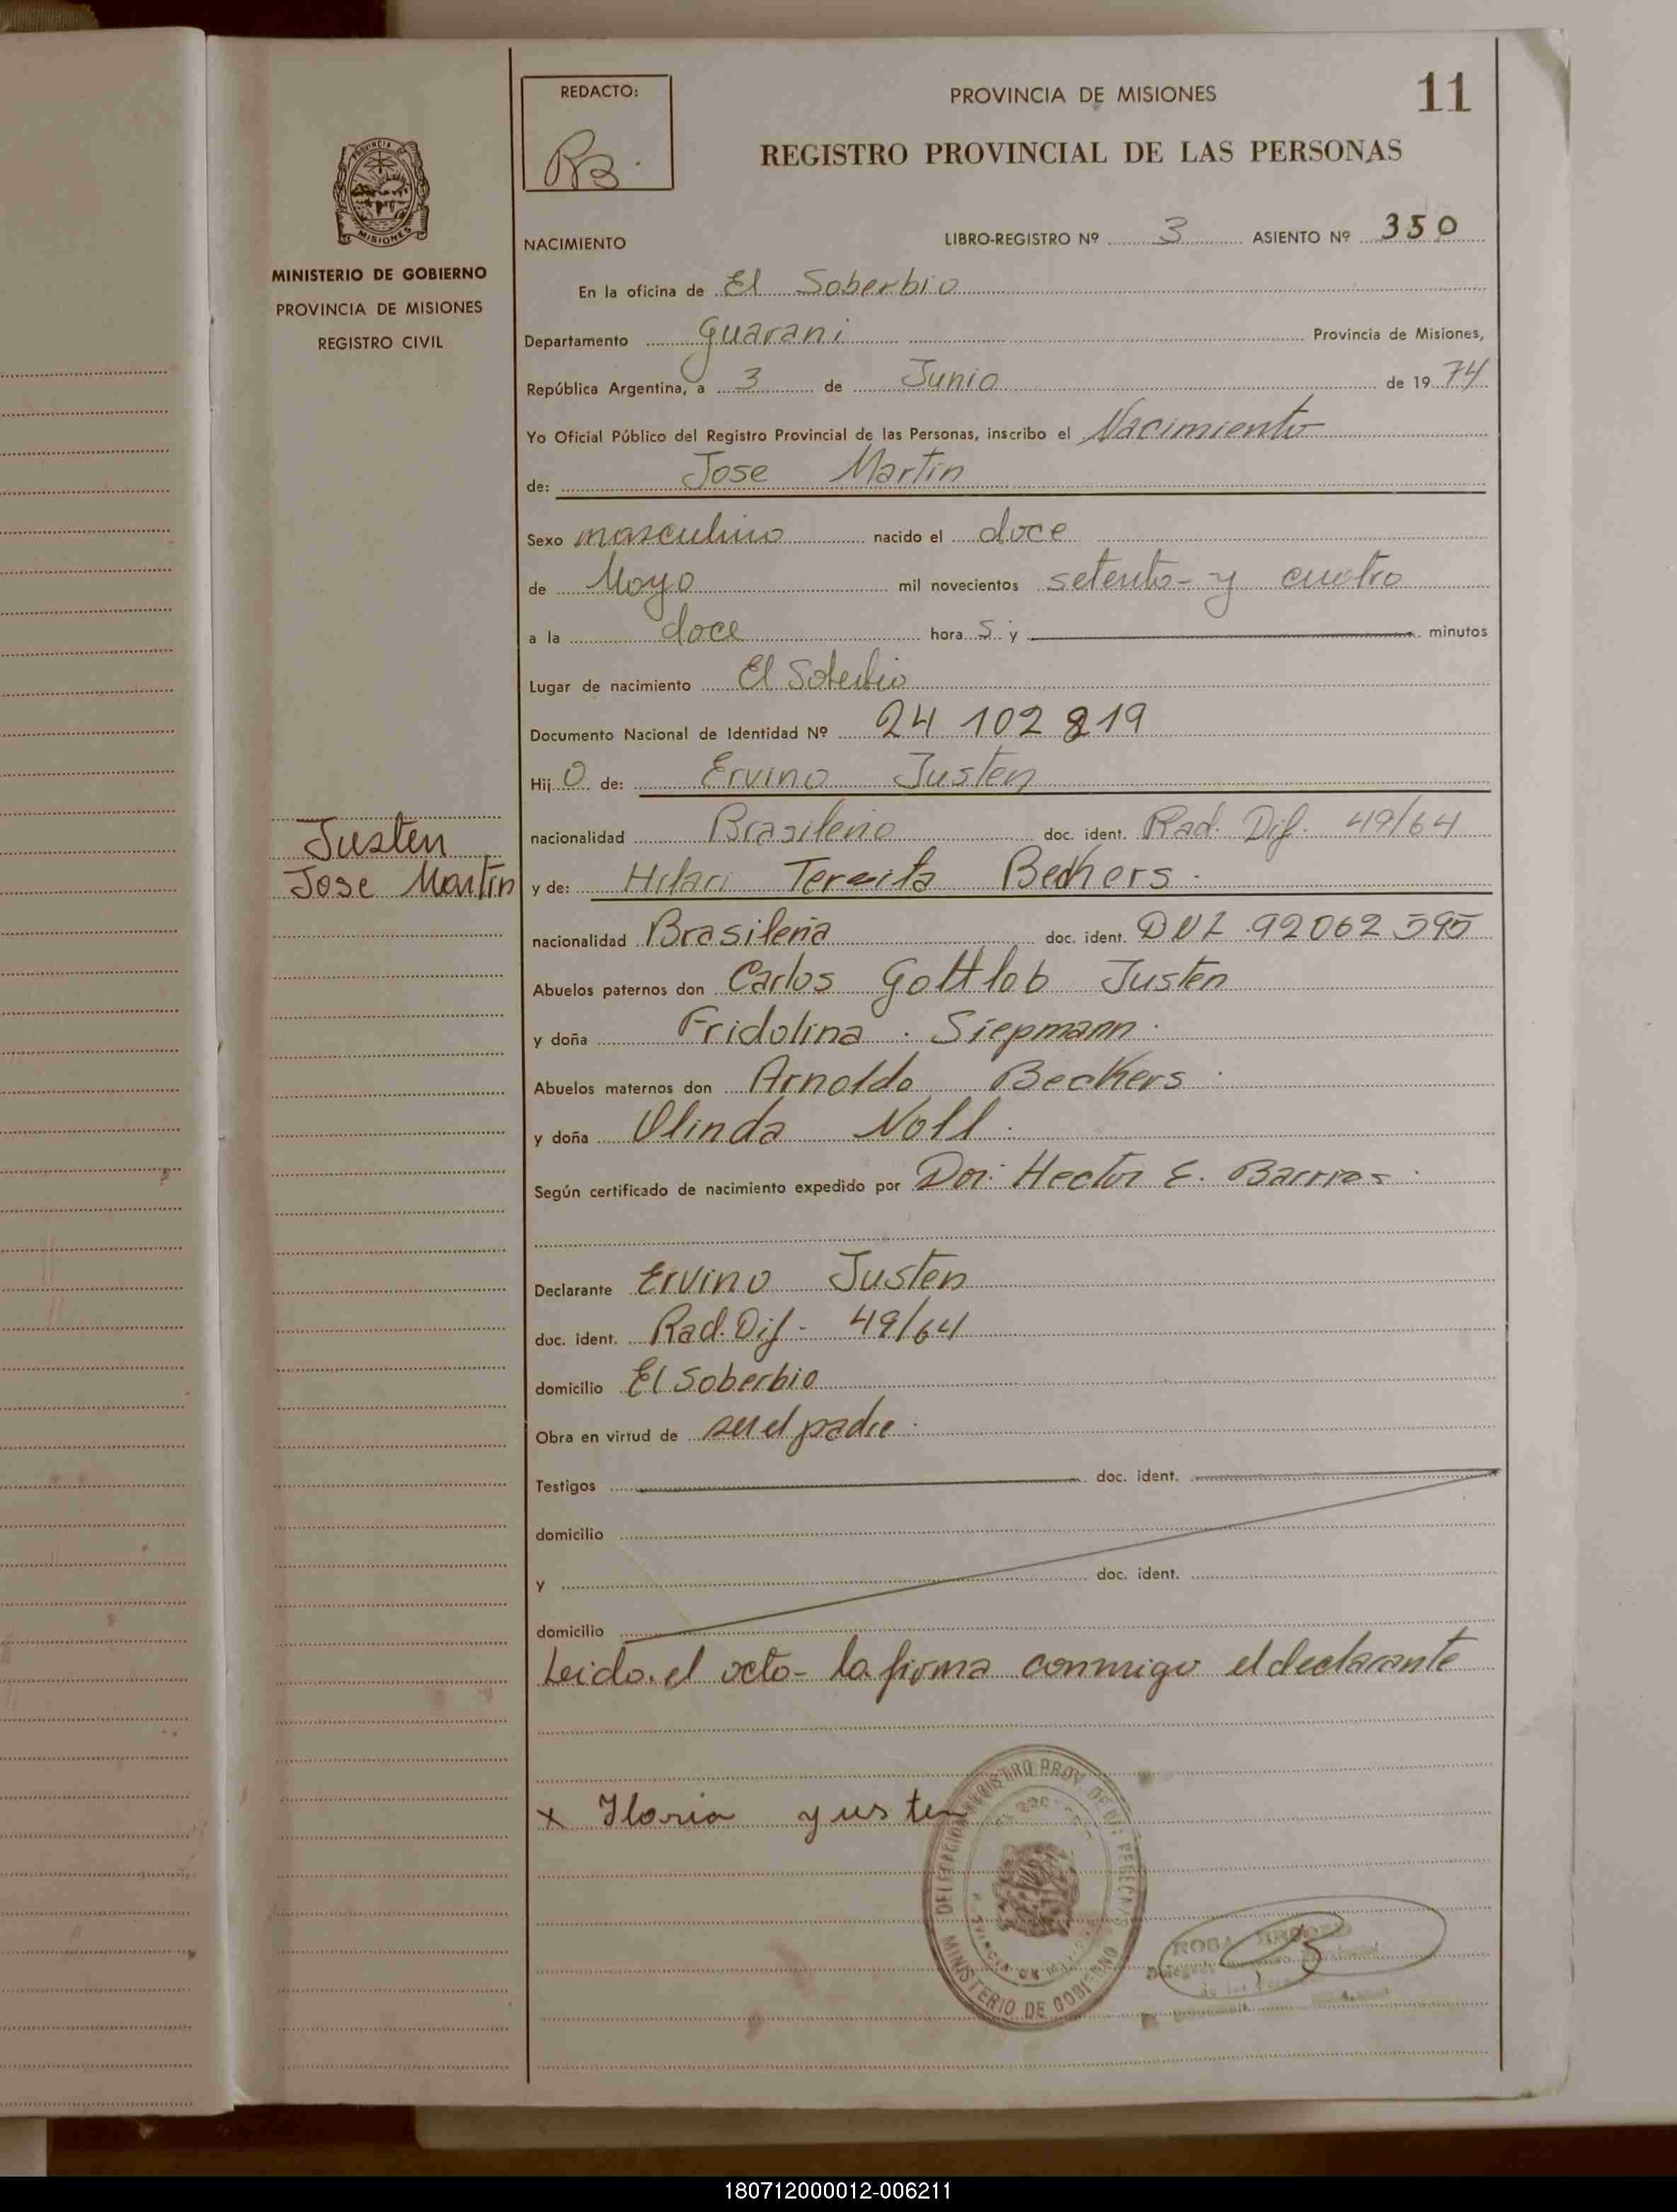 REDACTO:
PROVINCIA DE MISIONES
11
REGISTRO PROVINCIAL DE LAS PERSONAS
PROVINCIA
MISIONES
MINISTERIO DE GOBIERNO
PROVINCIA DE MISIONES
REGISTRO CIVIL
NACIMIENTO LIBRO-REGISTRO Nº 3 ASIENTO Nº 350
En la oficina de El Soberbio
Departamento Guarani Provincia de Misiones,
República Argentina, a 3 de Junio de 1974
Yo Oficial Público del Registro Provincial de las Personas, inscribo el Nacimiento
de: Jose Martin
Sexo masculino nacido el doce
de Mayo mil novecientos setenta y cuatro
a la doce hora s y minutos
Lugar de nacimiento El Soberbio
Documento Nacional de Identidad Nº 24 102 819
Hijo de: Ervino Justen
nacionalidad Brasileño doc. ident. Rad. Dif. 49/64
Justen
Jose Martin
y de: Hilari Teresita Beckers.
nacionalidad Brasileña doc. ident. DNI 92062595
Abuelos paternos don Carlos Gottlob Justen
y doña Fridolina Siepmann.
Abuelos maternos don Arnoldo Beckers.
y doña Olinda Noll.
Según certificado de nacimiento expedido por Dor: Hector E. Barrios
Declarante Ervino Justen
doc. ident. Rad. Dif - 49/64
domicilio El Soberbio
Obra en virtud de ser el padre.
Testigos doc. ident.
domicilio
y doc. ident.
domicilio
Leido el acto - la firma conmigo el declarante
x yusten
MINISTERIO DE GOBIERNO
180712000012-006211